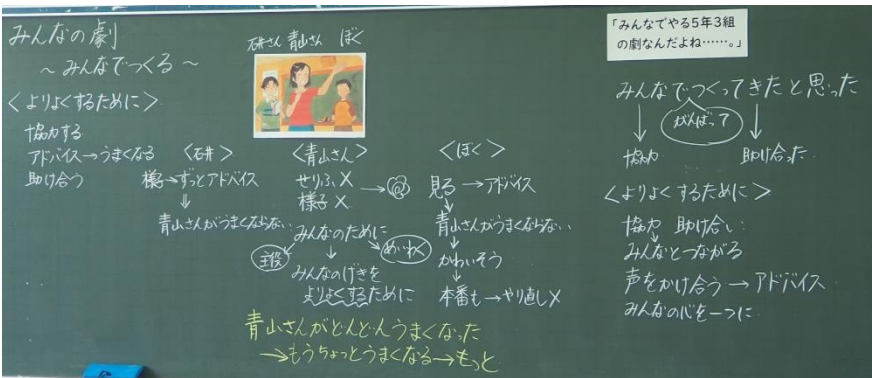 みんなの劇
～みんなでつくる～
＜よりよくするために＞
協力する
アドバイス→うまくなる
助け合う
石井さん 青山さん ぼく
＜石井＞
様子→ずっとアドバイス
⇓
青山さんがうまくならない
＜青山さん＞
せりふ×
様子×
→
みんなのために
主役
めいわく
↓
みんなのげきを
よりよくするために
＜ぼく＞
見る→アドバイス
↓
青山さんがうまくならない
↓
かわいそう
↓
本番も→やり直し×
青山さんがどんどんうまくなった
→もうちょっとうまくなる→もっと
「みんなでやる5年3組
の劇なんだよね……。」
みんなでつくってきたと思った
がんばって
↓
協力
↓
助け合った
＜よりよくするために＞
協力 助け合い
↓
みんなとつながる
声をかけ合う→アドバイス
みんなの心を一つに